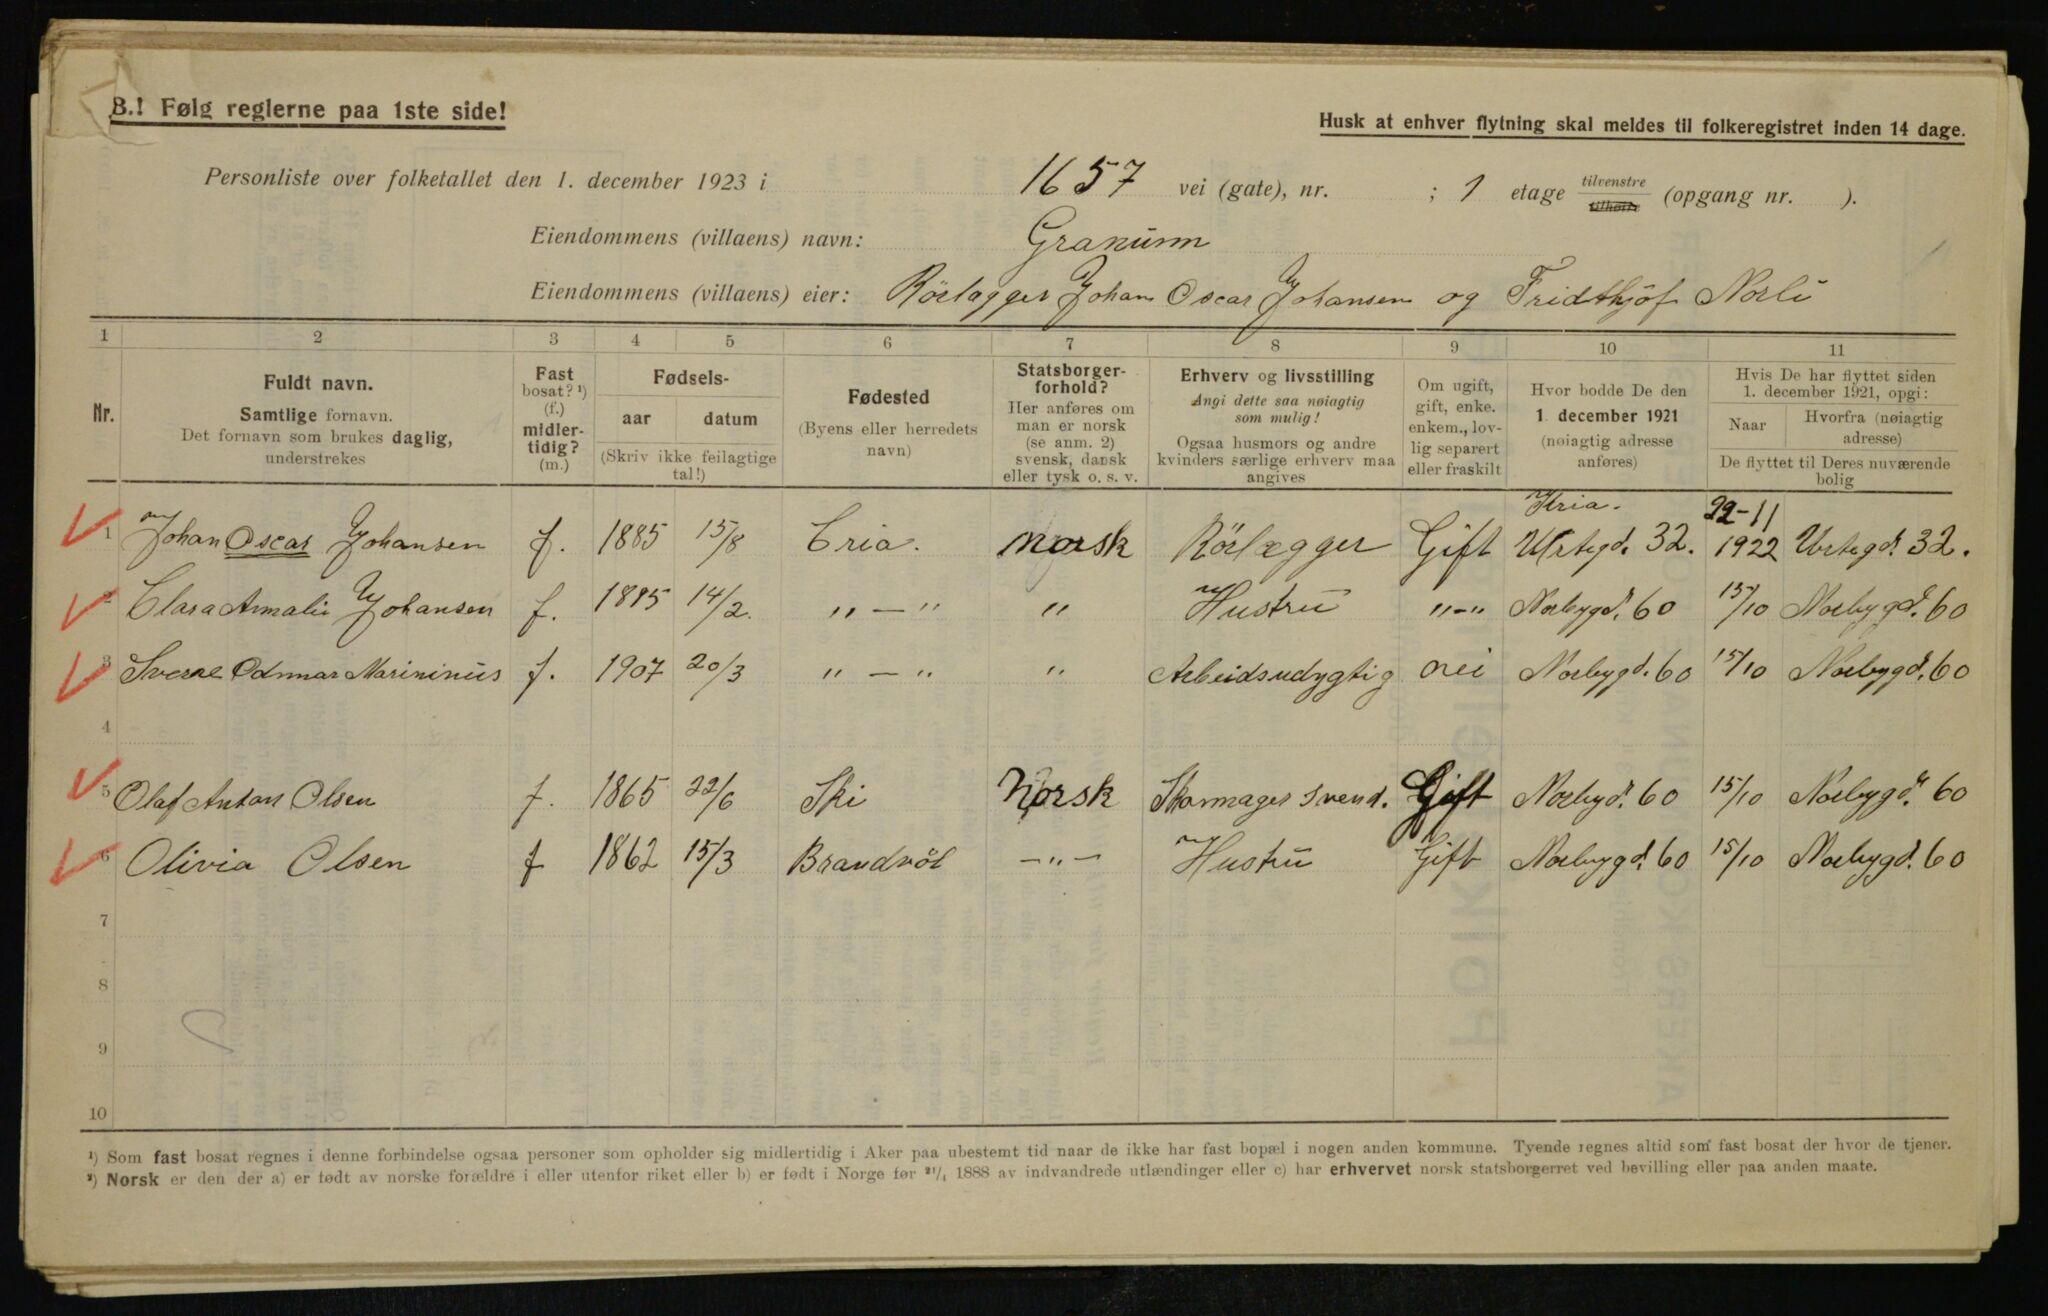 B.! Følg reglerne paa 1ste side!
Husk at enhver flytning skal meldes til folkeregistret inden 14 dage.
Personliste over folketallet den 1. december 1923 i 1657 vei (gate), nr. ; 1 etage tilvenstre tilhøire (opgang nr. ).
Eiendommens (villaens) navn: Granum
Eiendommens (villaens) eier: Rörlægger Johan Oscar Johansen og Fridthjof Norli
1 2 3 4 5 6 7 8 9 10 11
Nr.
Fuldt navn.
Samtlige fornavn.
Det fornavn som brukes daglig,
understrekes
Fast
bosat? ¹)
(f.)
midler-
tidig?
(m.)
Fødsels-
aar datum
(Skriv ikke feilagtige
tal!)
Fødested
(Byens eller herredets
navn)
Statsborger-
forhold?
Her anføres om
man er norsk
(se anm. 2)
svensk, dansk
eller tysk o. s. v.
Erhverv og livsstilling
Angi dette saa nøiagtig
som mulig!
Ogsaa husmors og andre
kvinders særlige erhverv maa
angives
Om ugift,
gift, enke.
enkem., lov-
lig separert
eller fraskilt
Hvor bodde De den
1. december 1921
(nøiagtig adresse
anføres)
Hvis De har flyttet siden
1. december 1921, opgi:
Naar Hvorfra (nøiagtig
adresse)
De flyttet til Deres nuværende
bolig
Kria. 22-11
1 Johan Oscar Johansen f. 1885 15/8 Cria. norsk Rörlægger Gift Urtegd. 32. 1922 Urtegd. 32.
2 Clara Amalie Johansen f. 1895 14/2. " — " " Hustru "—" Norbygd. 60 15/10 Norbygd. 60
3 Sverre Odmar Marininus f. 1907 20/3 " — " " Arbeidsudygtig nei Norbygd. 60 15/10 Norbygd. 60
4
5 Olaf Anton Olsen f. 1865 22/6 Ski Norsk Skomager svend. Gift Norbygd. 60 15/10 Norbygd. 60
6 Olivia Olsen f 1862 15/3 Brandvol —"— Hustru Gift Norbygd. 60 15/10 Norbygd. 60
7
8
9
10
¹) Som fast bosat regnes i denne forbindelse ogsaa personer som opholder sig midlertidig i Aker paa ubestemt tid naar de ikke har fast bopæl i nogen anden kommune. Tyende regnes altid som fast bosat der hvor de tjener.
²) Norsk er den der a) er født av norske forældre i eller utenfor riket eller b) er født i Norge før ²¹/₄ 1888 av indvandrede utlændinger eller c) har erhvervet norsk statsborgerret ved bevilling eller paa anden maate.